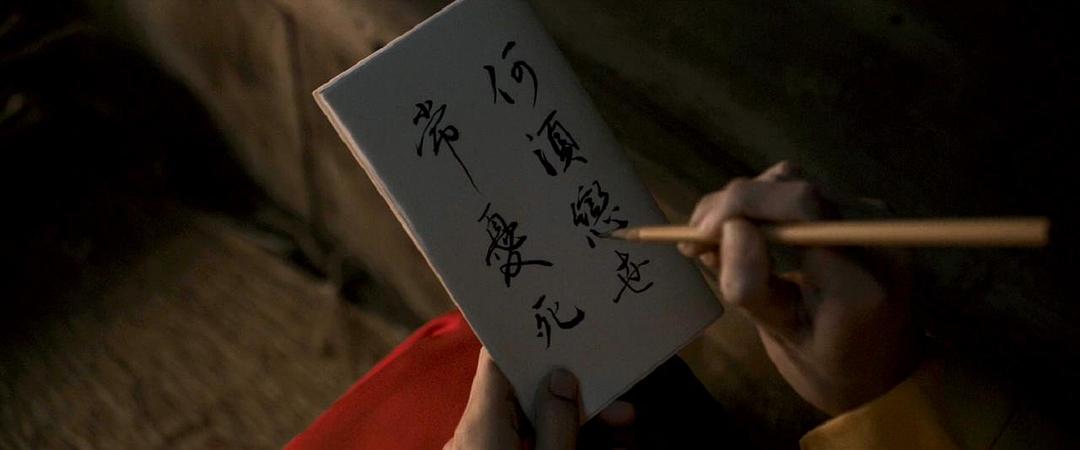 何須戀世
常憂死